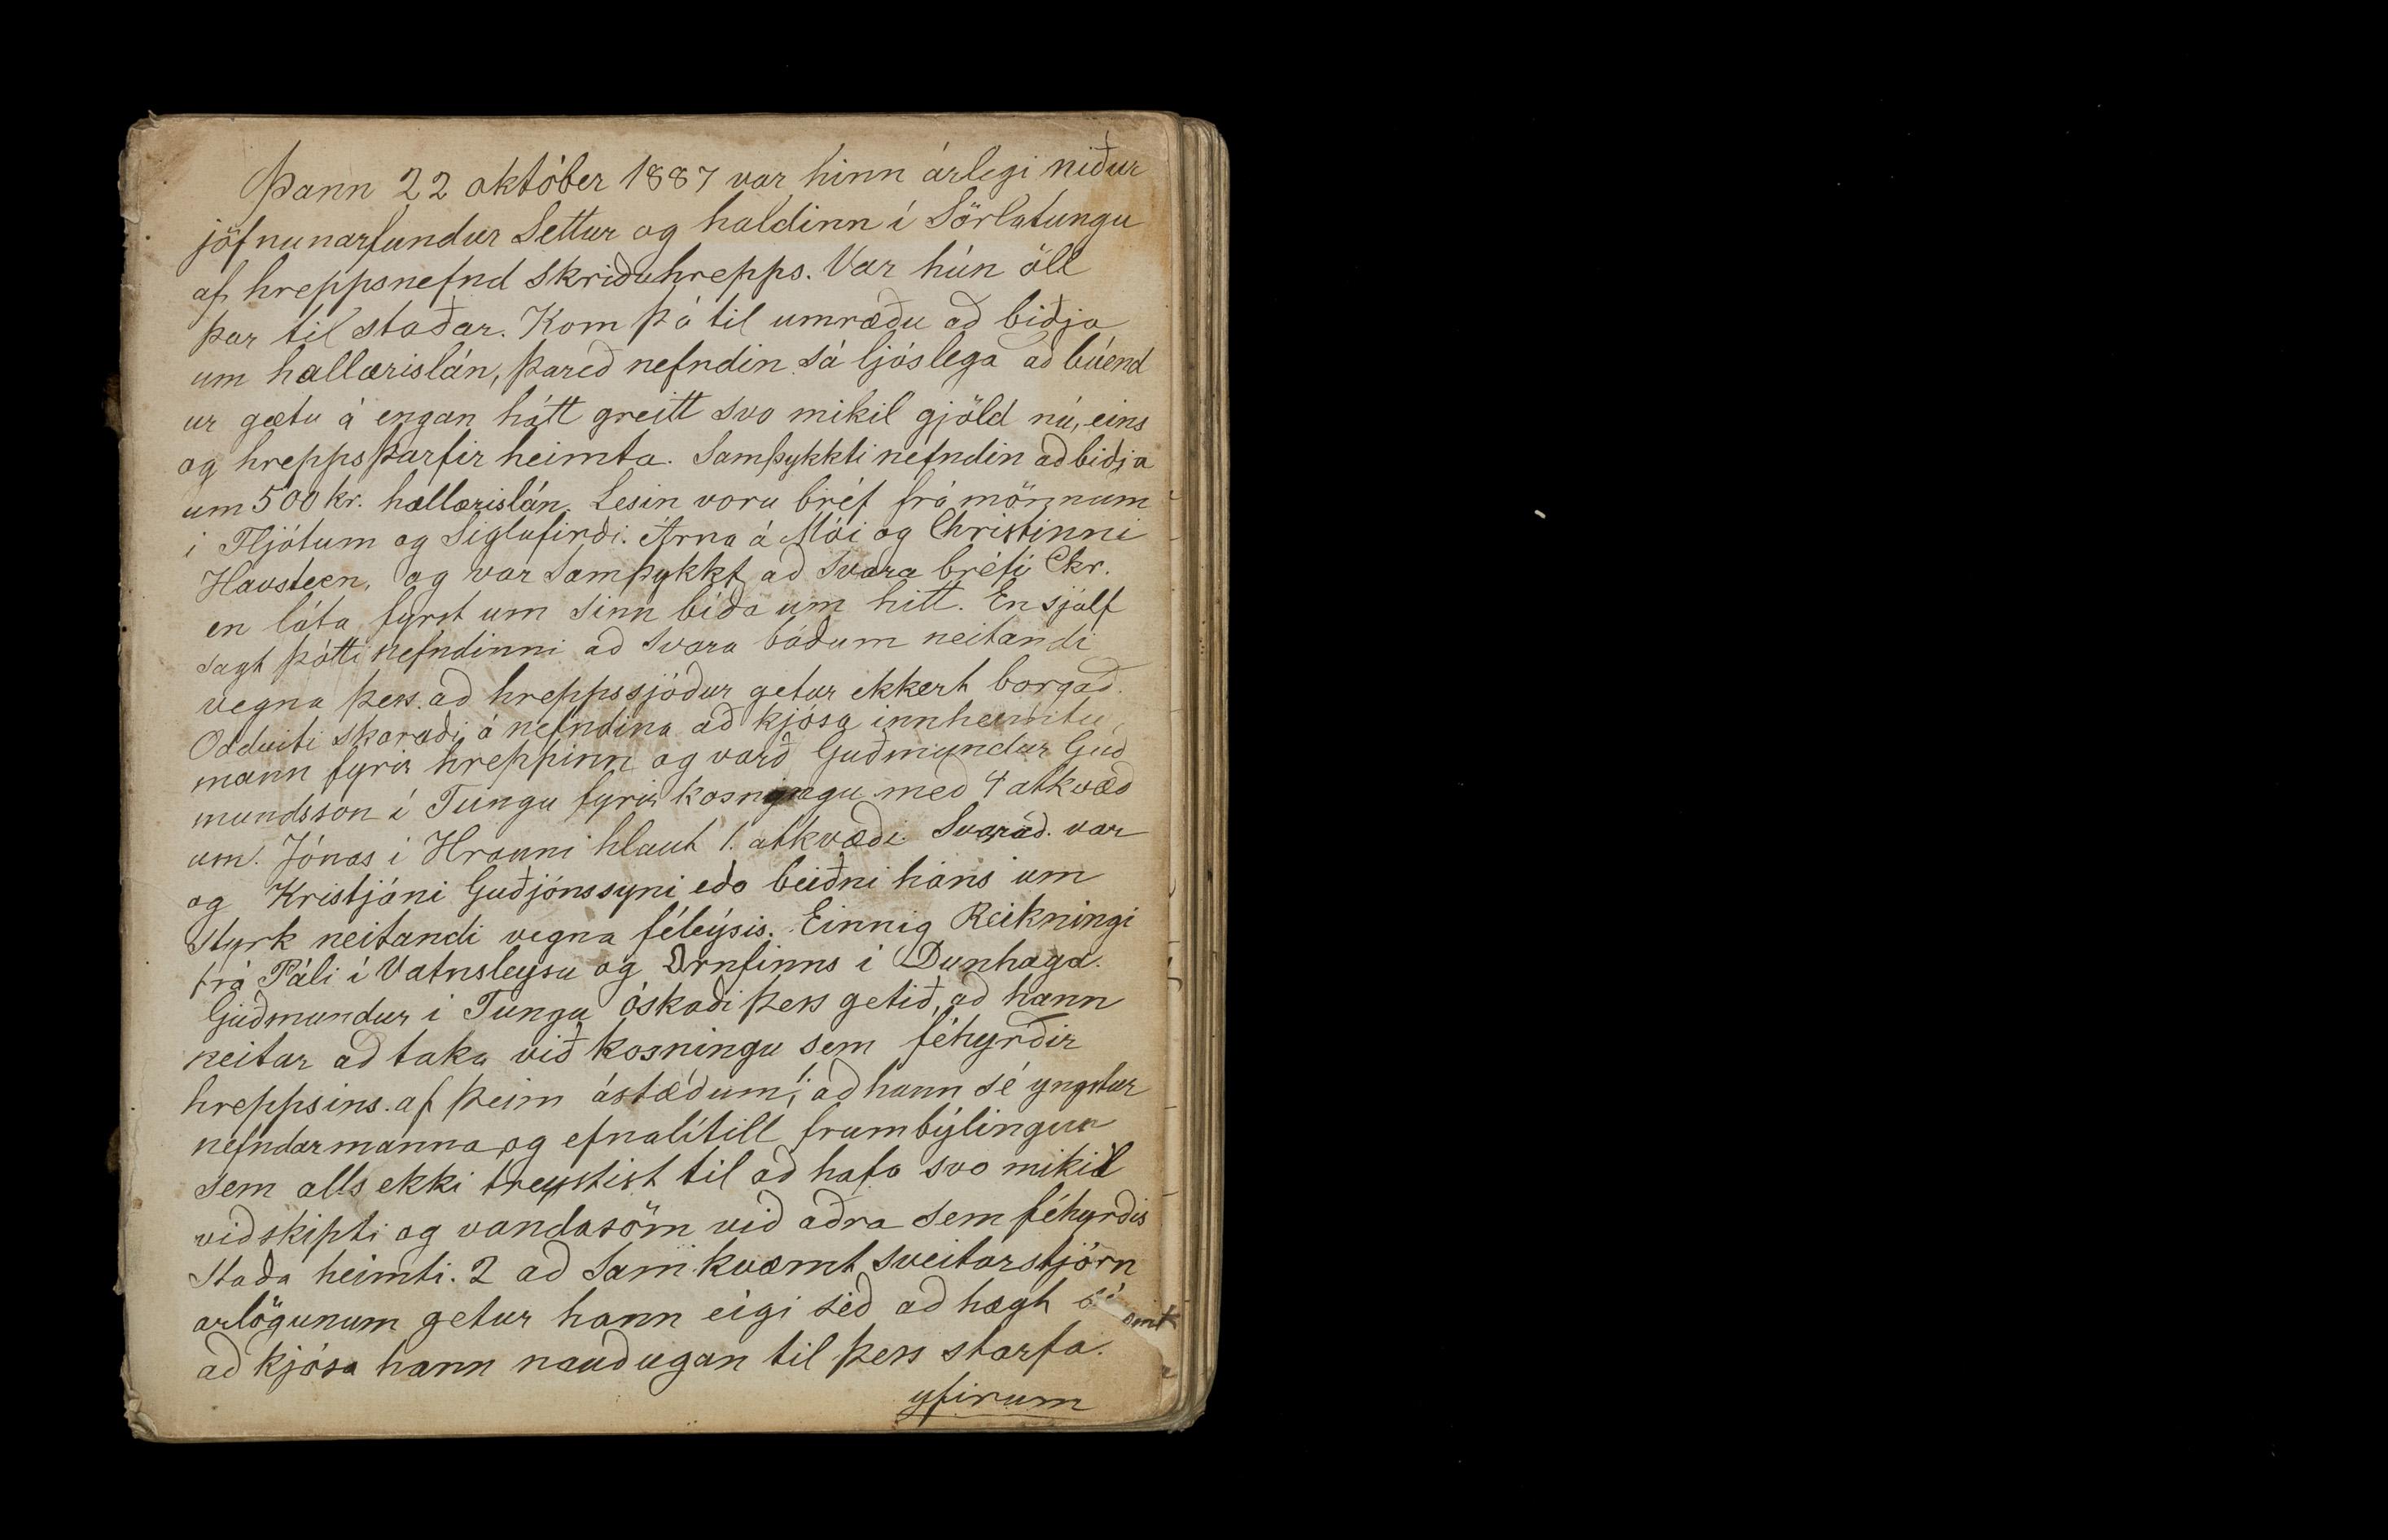 Þann 22 október 1887 var hinn árlegi niður
jöfnunarfundur Settur og haldinn í Sörlatungu
af hreppsnefnd Skriðuhrepps. Var hún öll
þar til staðar. Kom þá til umræðu að biðja
um hallærislán, þareð nefndin sá ljóslega að búend
ur gætu á engan hátt greitt svo mikil gjöld nú, eins
og hreppsþarfir heimta. Samþykkti nefndin að biðja
um 500 kr. hallærislán. Lesin voru bréf frá mönnum
í Fljótum og Siglufirði. Árna á Mói og Christinni
Havsteen, og var Samþykkt að svara bréfi Chr.
en láta fyrst um sinn bíða um hitt. En sjálf
sagt þótti nefndinni að svara báðum neitandi
vegna þess að hreppssjóður getur ekkert borgað.
Oddviti skoraði á nefndina að kjósa innheimtu
mann fyrir hreppinn og varð Guðmundur Guð
mundsson í Tungu fyrir kosningu með 4 atkvæð
um. Jónas í Hrauni hlaut 1. atkvæði. Svarað. var
og Kristjáni Guðjónssyni eða beiðni hans um
styrk neitandi vegna féleýsis. Einnig Reikningi
frá Páli í Vatnsleysu og Arnfinns í Dunhaga.
Guðmundur í Tungu óskaði þess getið, að hann
neitar að taka við kosningu sem féhyrðir
hreppsins. af þeim ástæðum, 1; að hann sé yngstur
nefndarmanna og efnalítill frumbýlingur
sem alls ekki treystist til að hafa svo mikil
viðskipti og vandasöm við aðra sem féhyrðis
staða heimti. 2 að Samkvæmt sveitarstjórn
arlögunum getur hann eigi séð að hægt sé
að kjósa hann nauðugan til þess starfa.
yfirum